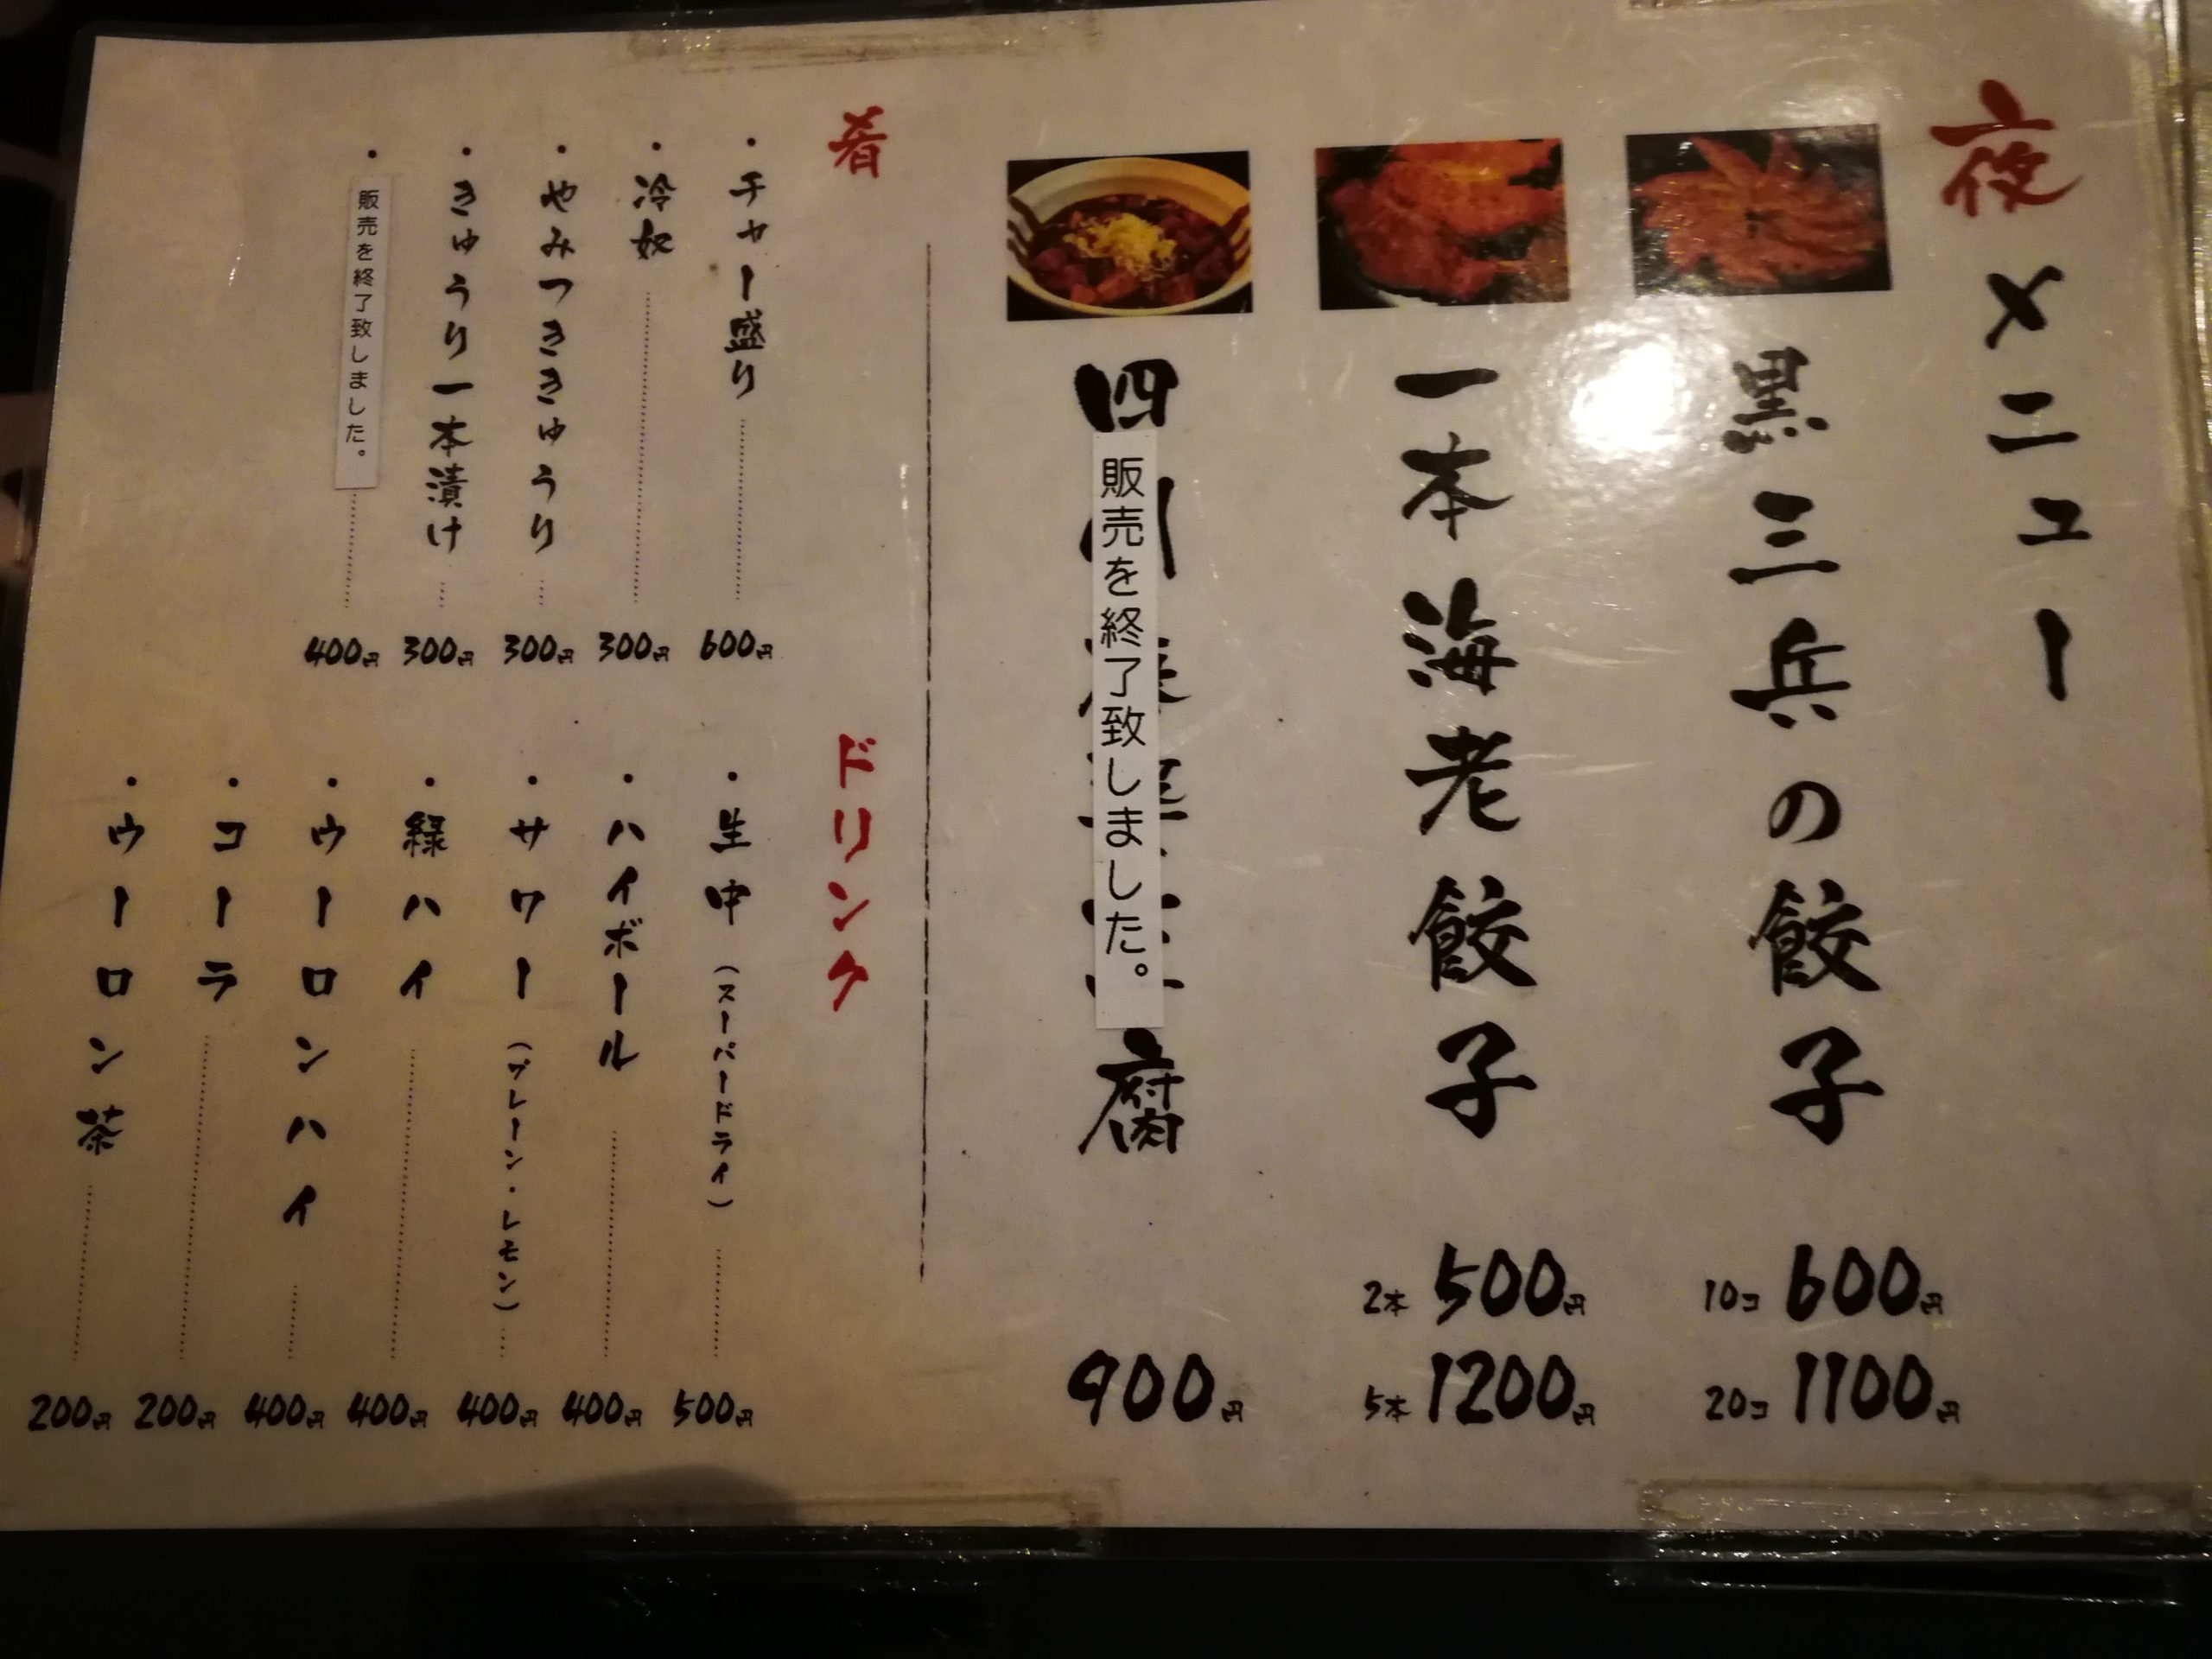 夜メニュー
黒三兵の餃子
10コ 600円
20コ 1100円
一本海老餃子
2本 500円
5本 1200円
四川
腐
販売を終了致しました。
900円
肴
・チャー盛り 600円
・冷奴 300円
・やみつききゅうり 300円
・きゅうり一本漬け 300円
・販売を終了致しました。 400円
ドリンク
・生中（スーパードライ） 500円
・ハイボール 400円
・サワー（プレーン・レモン） 400円
・緑ハイ 400円
・ウーロンハイ 400円
・コーラ 200円
・ウーロン茶 200円